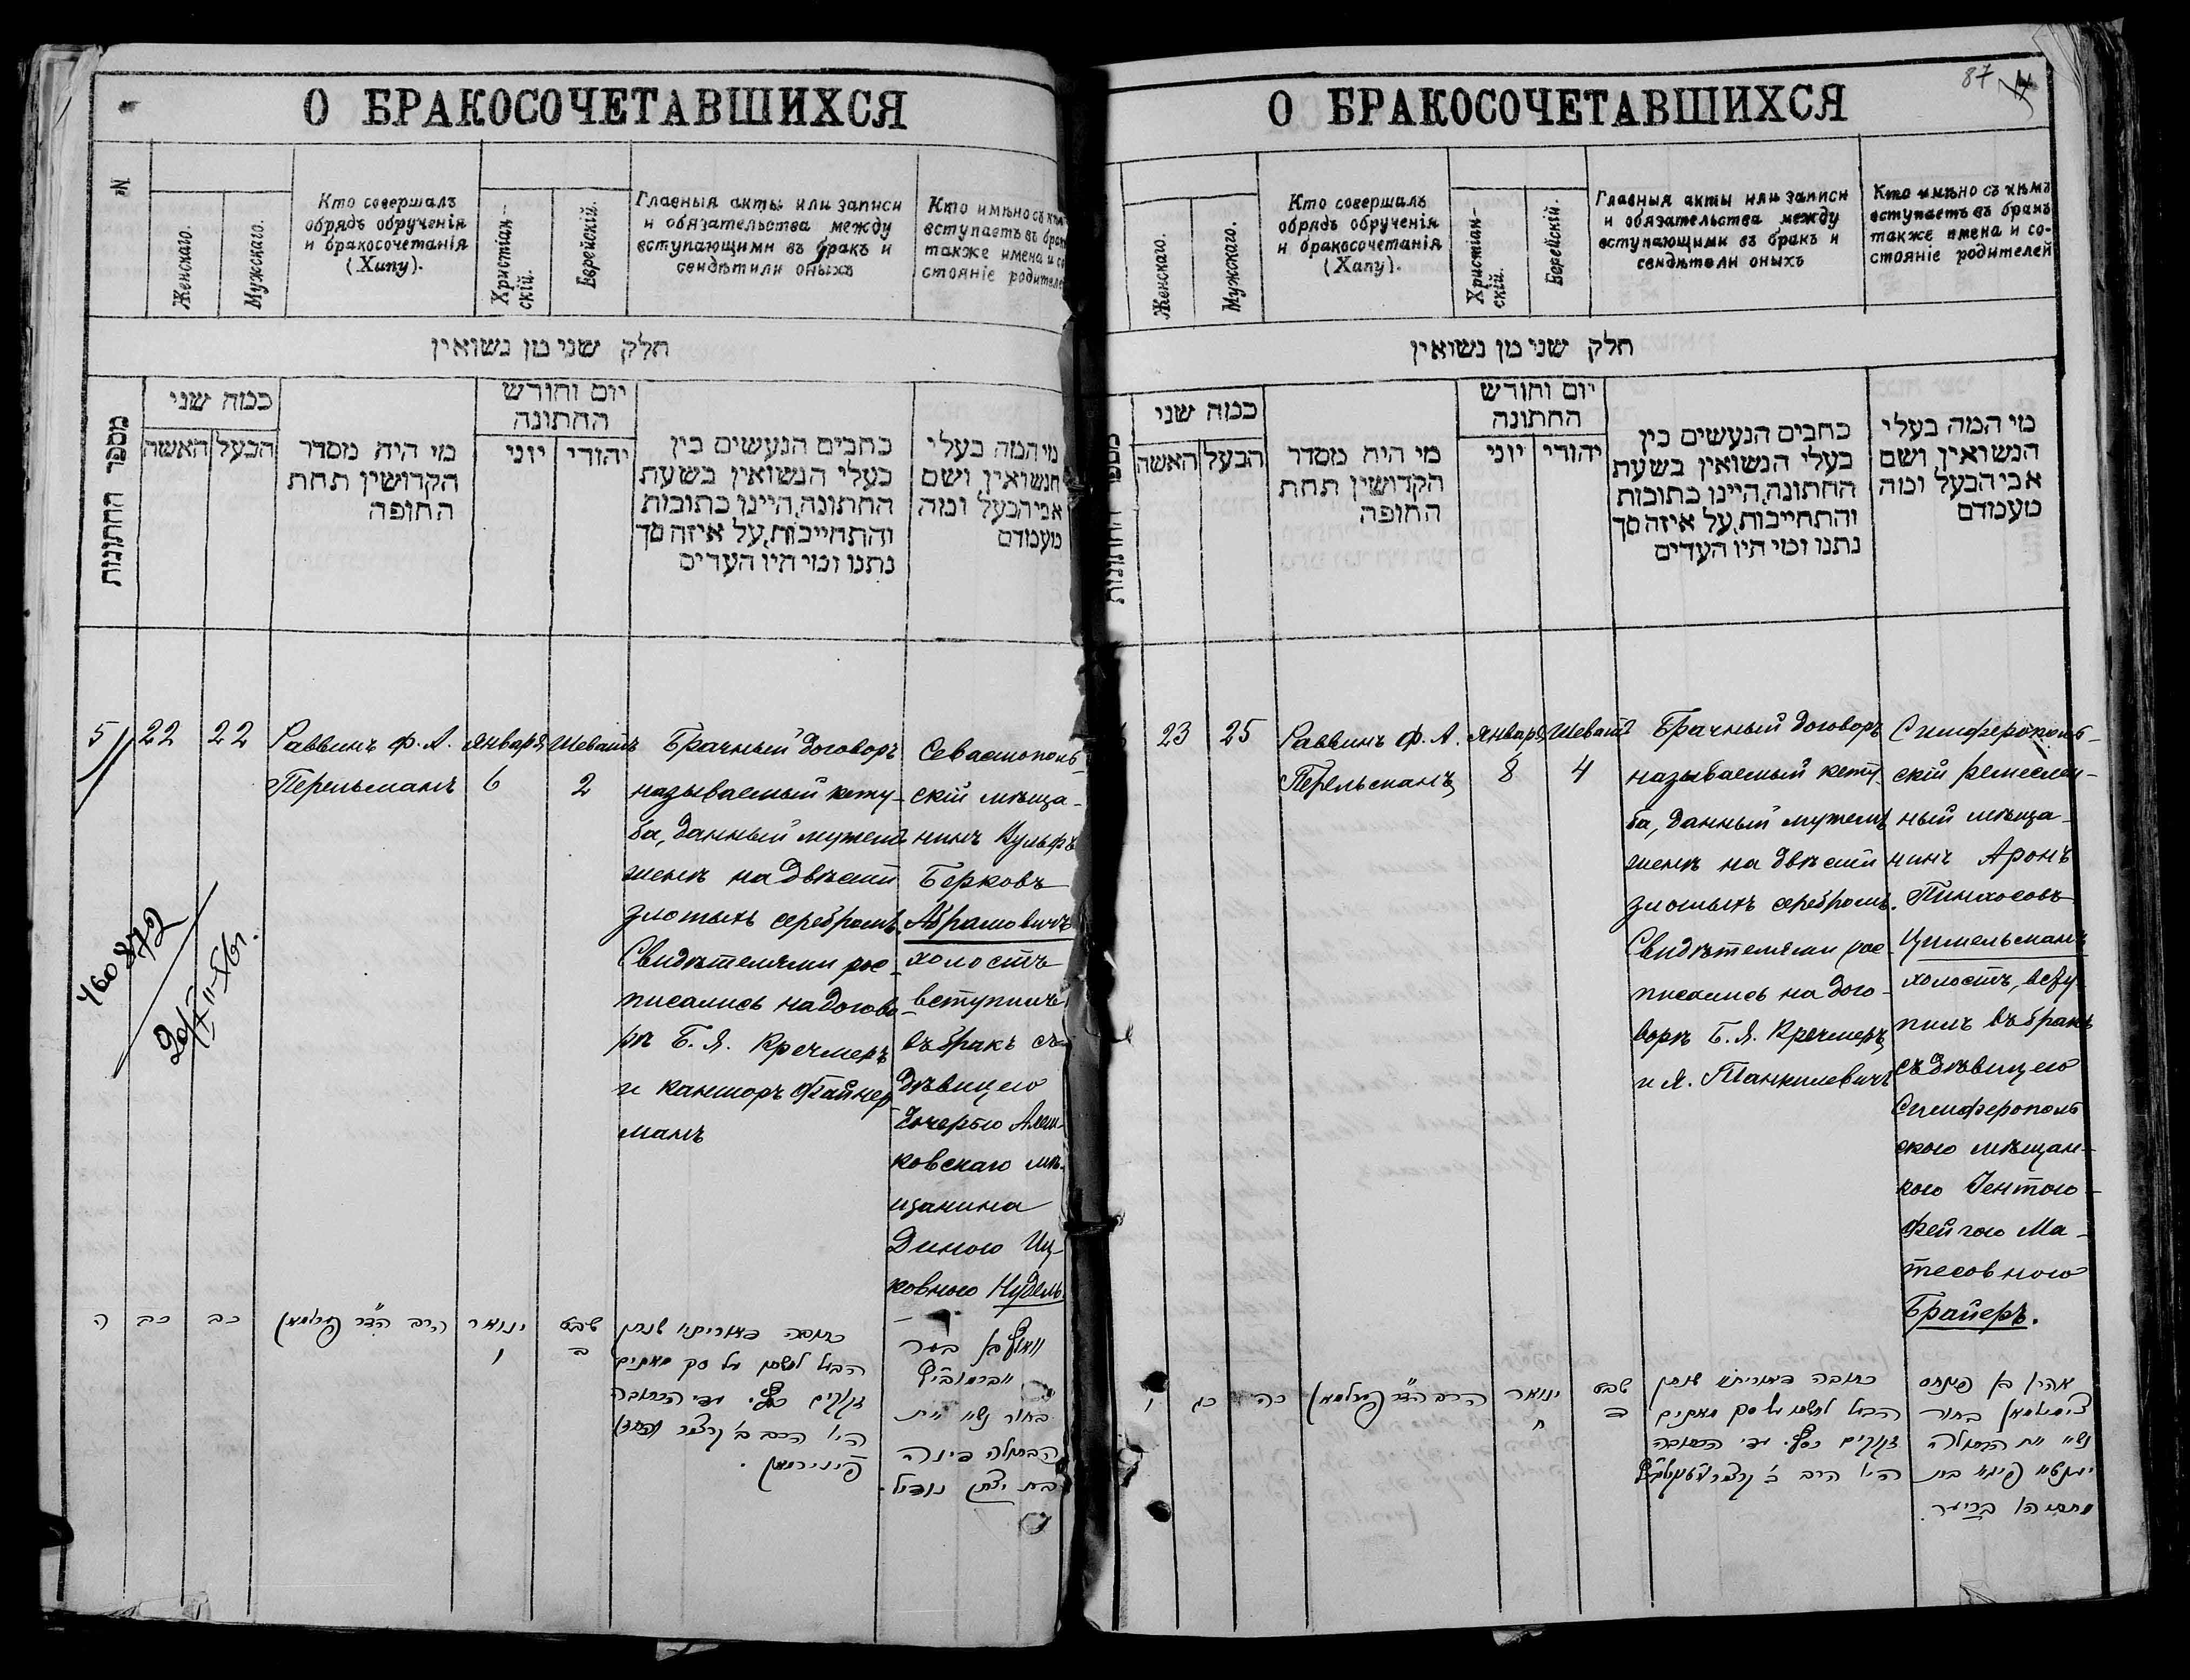 О БРАКОСОЧЕТАВШИХСЯ
№
Женскаго.
Мужскаго.
Кто совершалъ
обрядъ обрученія
и бракосочетанія
(Хипу).
Христіан-
скій.
Еврейскій.
Главныя акты или записи
и обязательства между
вступающими въ бракъ и
свидѣтили оныхъ
Кто имѣно съ кѣмъ
вступаетъ въ бракъ
также имена и со-
стояніе родителей
חלק שני מן נשואין
מספר החתונות
כמה שני
האשה
הבעל
מי היה מסדר
הקדושין תחת
החופה
יום וחודש
החתונה
יוני
יהודי
כתבים הנעשים בין
בעלי הנשואין בשעת
החתונה, היינו כתובות
והתחייבות, על איזה סך
נתנו ומי היו העדים
מי המה בעלי
הנשואין ושם
אבי הבעל ומה
מעמדם
5
22
22
Раввинъ Ф. А.
Перельманъ
Января
6
Шеватъ
2
Брачный договоръ
называемый кету-
ба, данный мужемъ
женѣ на двѣсти
злотыхъ серебромъ.
Свидѣтелями рос-
писались на догово-
рѣ Б. Я. Кречмеръ
и канторъ Файнер-
манъ
Севастополь-
скій мѣща-
нинъ Вульфъ
Берковъ
Абрамовичъ
холостъ
вступилъ
въ бракъ съ
дѣвицею
дочерью Алеш-
ковскаго мѣ-
щанина
Диною Иц-
ковною Нудель
460 872
ה
כב
כב
הרב הד״ר פערלמאן
ינואר
ו
שבט
ב
כתובה דאורייתא שנתן
הבעל לאשתו על סך מאתים
זקוקים כסף. עדי הכתובה
היו הרב ב׳ קרעצמר והחזן
פיינירמאן.
וואלף בן בער
אבראמאביץ
בחור נשא את
הבתולה דינה
בת יצחק נודיל.
87
О БРАКОСОЧЕТАВШИХСЯ
Женскаго.
Мужскаго.
Кто совершалъ
обрядъ обрученія
и бракосочетанія
(Хапу).
Христіан-
скій.
Еврейскій.
Главныя акты или записи
и обязательства между
вступающими въ бракъ и
свидѣтели оныхъ
Кто имѣно съ кѣмъ
вступаетъ въ бракъ
также имена и со-
стояніе родителей
חלק שני מן נשואין
כמה שני
האשה
הבעל
מי היה מסדר
הקדושין תחת
החופה
יום וחודש
החתונה
יוני
יהודי
כתבים הנעשים בין
בעלי הנשואין בשעת
החתונה, היינו כתובות
והתחייבות, על איזה סך
נתנו ומי היו העדים
מי המה בעלי
הנשואין ושם
אבי הבעל ומה
מעמדם
23
25
Раввинъ Ф. А.
Перельманъ
Января
8
Шеватъ
4
Брачный договоръ
называемый кету-
ба, данный мужемъ
женѣ на двѣсти
злотыхъ серебромъ.
Свидѣтелями рос-
писались на дого-
ворѣ Б. Я. Кречмеръ
и Я. Танкилевичъ
Симферополь-
скій ремеслен-
ный мѣща-
нинъ Аронъ
Пинхосовъ
Цимельманъ
холостъ, всту-
пилъ въ бракъ
съ дѣвицею
Симферополь
скою мѣщан-
кою Ентою-
Фейгою Ма-
тесовною
Брайеръ.
ו
כג
כה
הרב הד״ר פערלמאן
ינואר
ח
שבט
ד
כתובה דאורייתא שנתן
הבעל לאשתו על סך מאתים
זקוקים כסף. עדי הכתובה
היו הרב ב׳ קרעצמר
אהרן בן פינחס
צימעלמאן בחור
נשא את הבתולה
יענטא פייגא בת
מתתיהו ברייער.